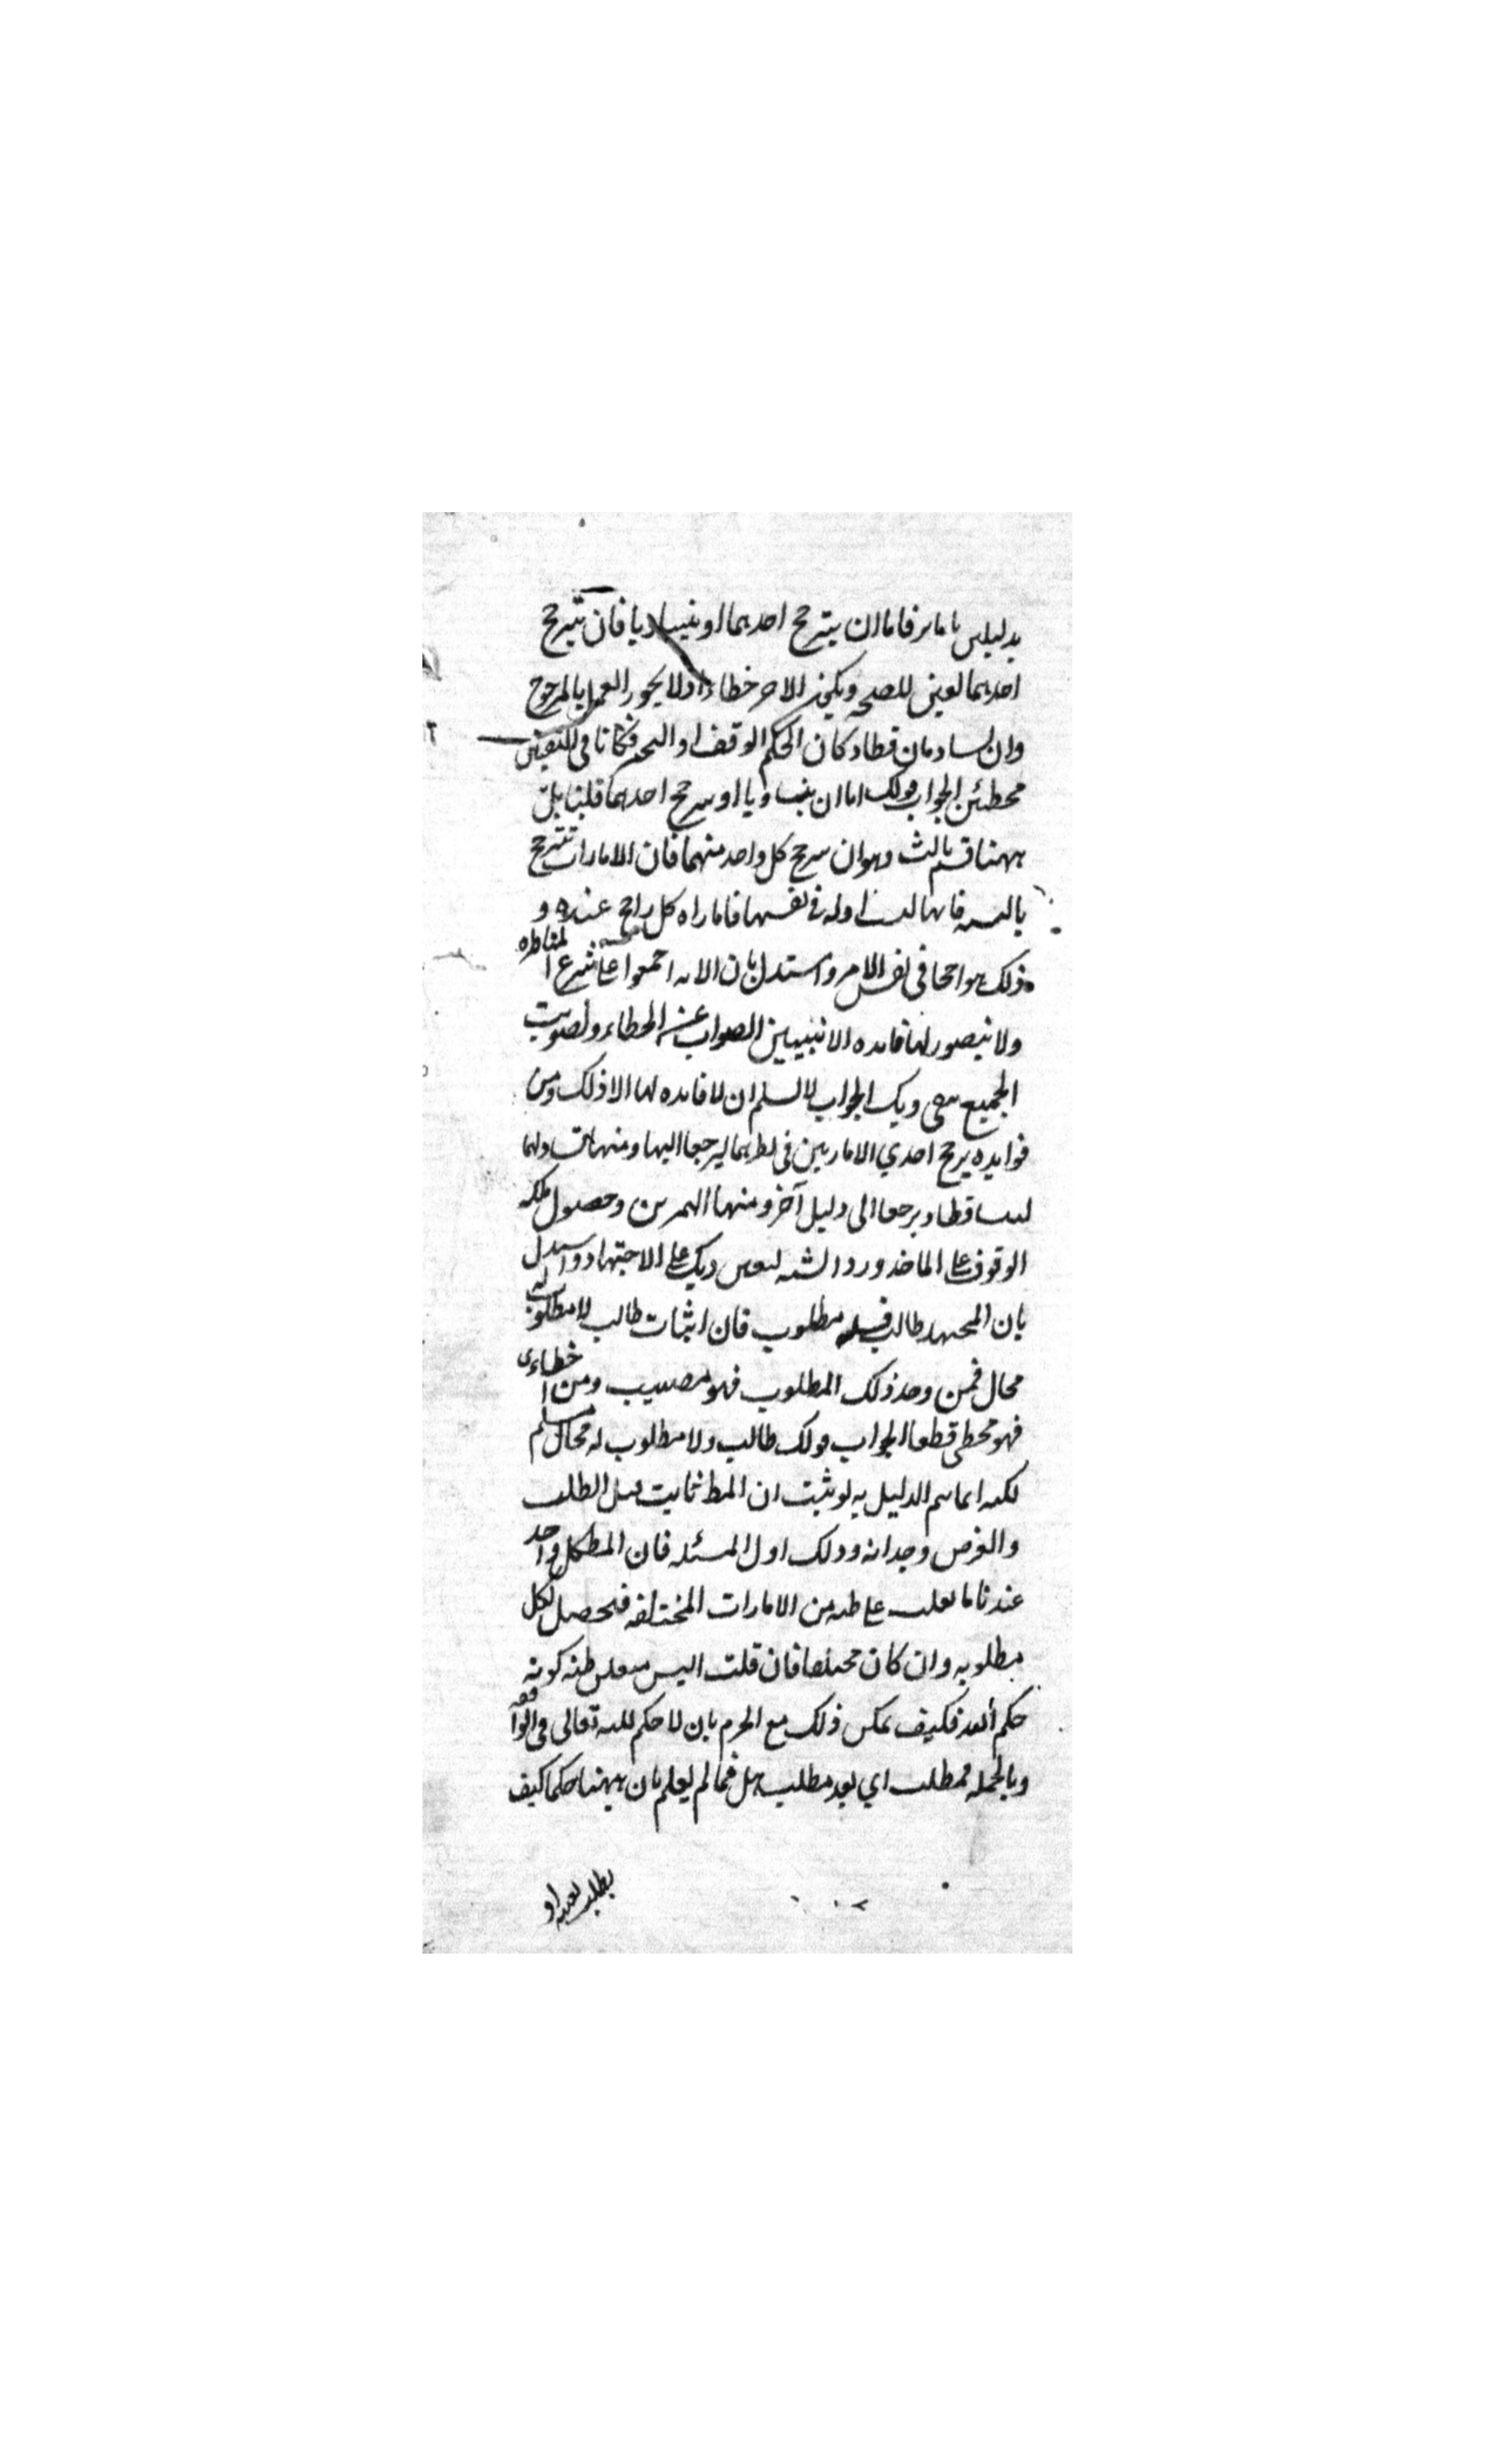 بدليلين فاما ان يترجح احدهما او يتساويا فان يترجح
احدهما تعين للصحه ويكون الاخر خطاء اذ لا يجوز العمل بالمرجوح
وان تساويا تساقطا وكان الحكم الوقف او التخير فكانا في التعيين
مخطئين الجواب قولك اما ان يتساويا او يترجح احدهما قلنا بل
ههنا قسم ثالث وهو ان يترجح كل واحد منهما فان الامارات تترجح
بالنسبه فانها ليست ادله في نفسها فاما راه كل راجح عنده و
ذلك هو راجحا في نفس الامر واستدل بان الامه اجمعوا على شرع المناظره
ولا يتصور لها فائده الا تبيين الصواب عن الخطاء وتصويب
الجميع ينفي ذلك الجواب لا نسلم ان لا فائده لها الا ذلك ومن
فوايده ترجح احدي الامارتين في نظرهما ليرجعا اليها ومنها تساويهما
ليتساقطا ويرجعا الى دليل آخر ومنها التمرين وحصول ملكه
الوقوف على الماخذ ورد الشبه ليعين ذلك على الاجتهاد واستدل
بان المجتهد طالب فله مطلوب فان اثبات طالب لا مطلوب له
محال فمن وجد ذلك المطلوب فهو مصيب ومن اخطاء
فهو مخطي قطعا الجواب قولك طالب ولا مطلوب له محال مسلم
لكنه انما يتم الدليل به لو ثبت ان المط ثابت قبل الطلب
والغرض وجدانه وذلك اول المسئله فان المط كل واحد
عندنا ما يغلب على ظنه من الامارات المختلفه فيحصل لكل
مطلوبه وان كان مختلفا فان قلت اليس متعلق ظنه كونه
حكم الله فكيف يمكن ذلك مع الجزم بان لا حكم لله تعالى في الواقعه
وبالجمله فمطلب اي بعد مطلب هل فما لم يعلم بان ههنا حكما كيف
يطلب تعينه او